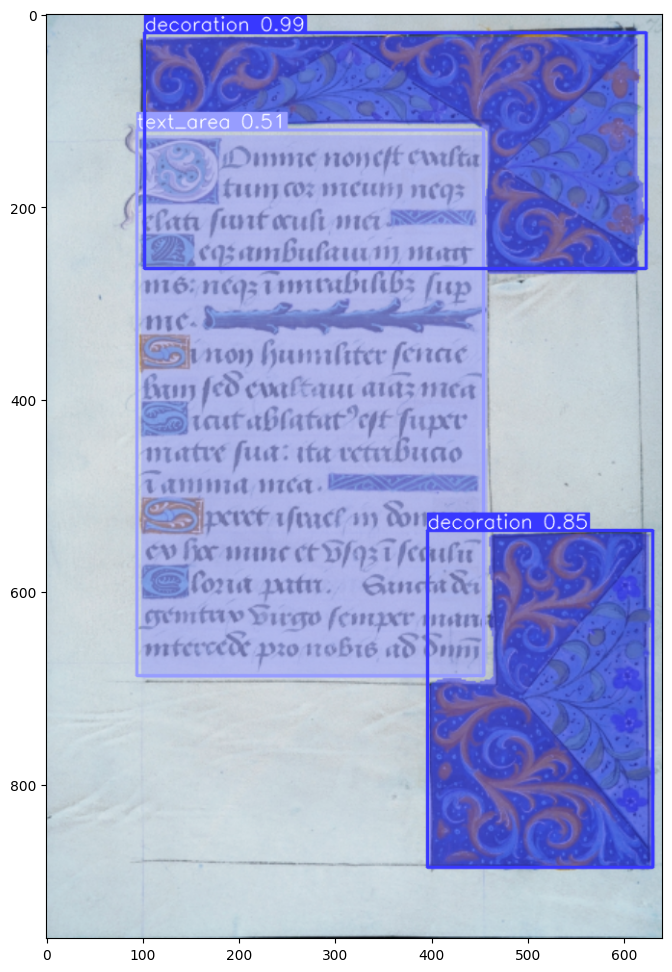 decoration 0.99
text_area 0.51
Domine non est exalta
tum cor meum neqʒ
elati sunt oculi mei.
Neqʒ ambulaui in mag
nis: neqʒ ī mirabilibʒ sup
me.
Si non humiliter sencie
bam sed exaltaui aīaʒ meā
Sicut ablatatꝰ est super
matre sua: ita retribucio
ī anima mea.
decoration 0.85
Speret israel in
ex hoc nunc et vsqʒ ī seculū
Gloria patri. Sancta dei
genitrix virgo semper maria
intercede pro nobis ad dn̄m
0
200
400
600
800
0 100 200 300 400 500 600